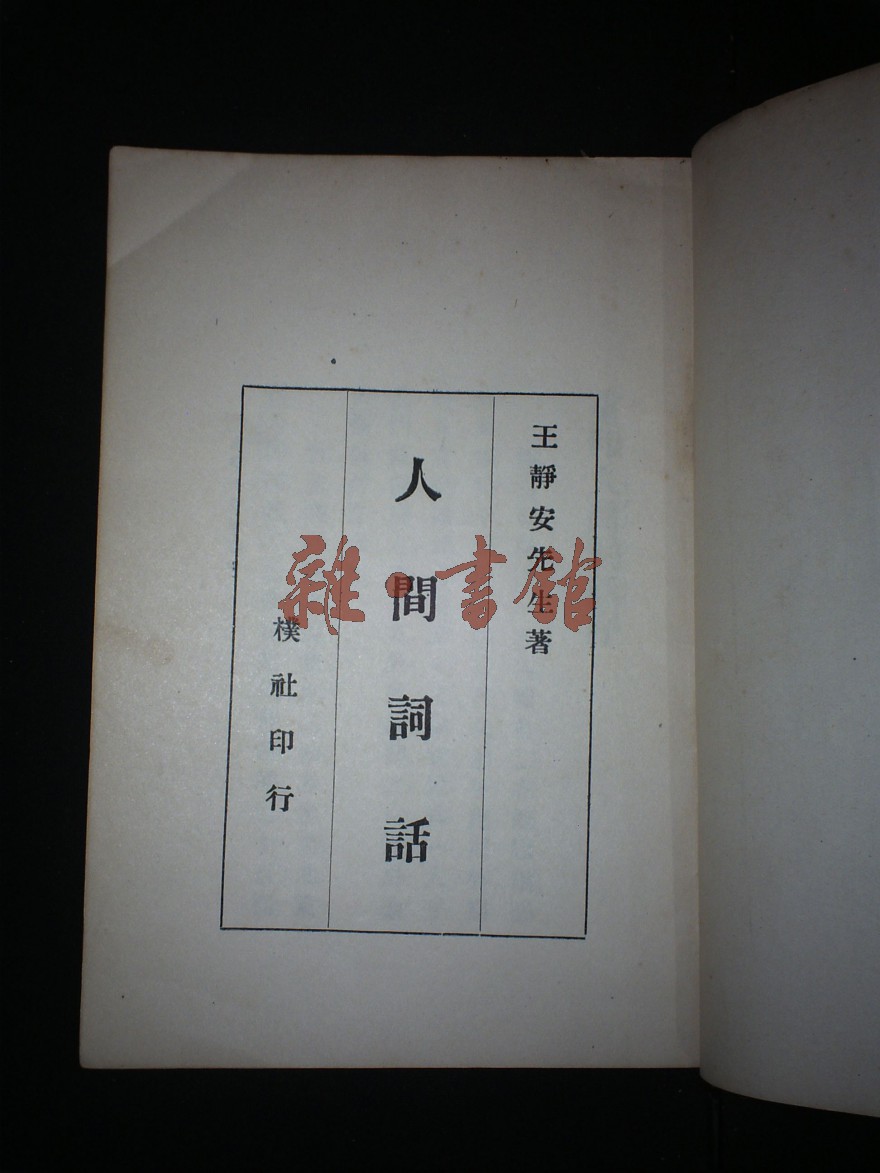 王靜安先生著
人間詞話
樸社印行
雜·書館